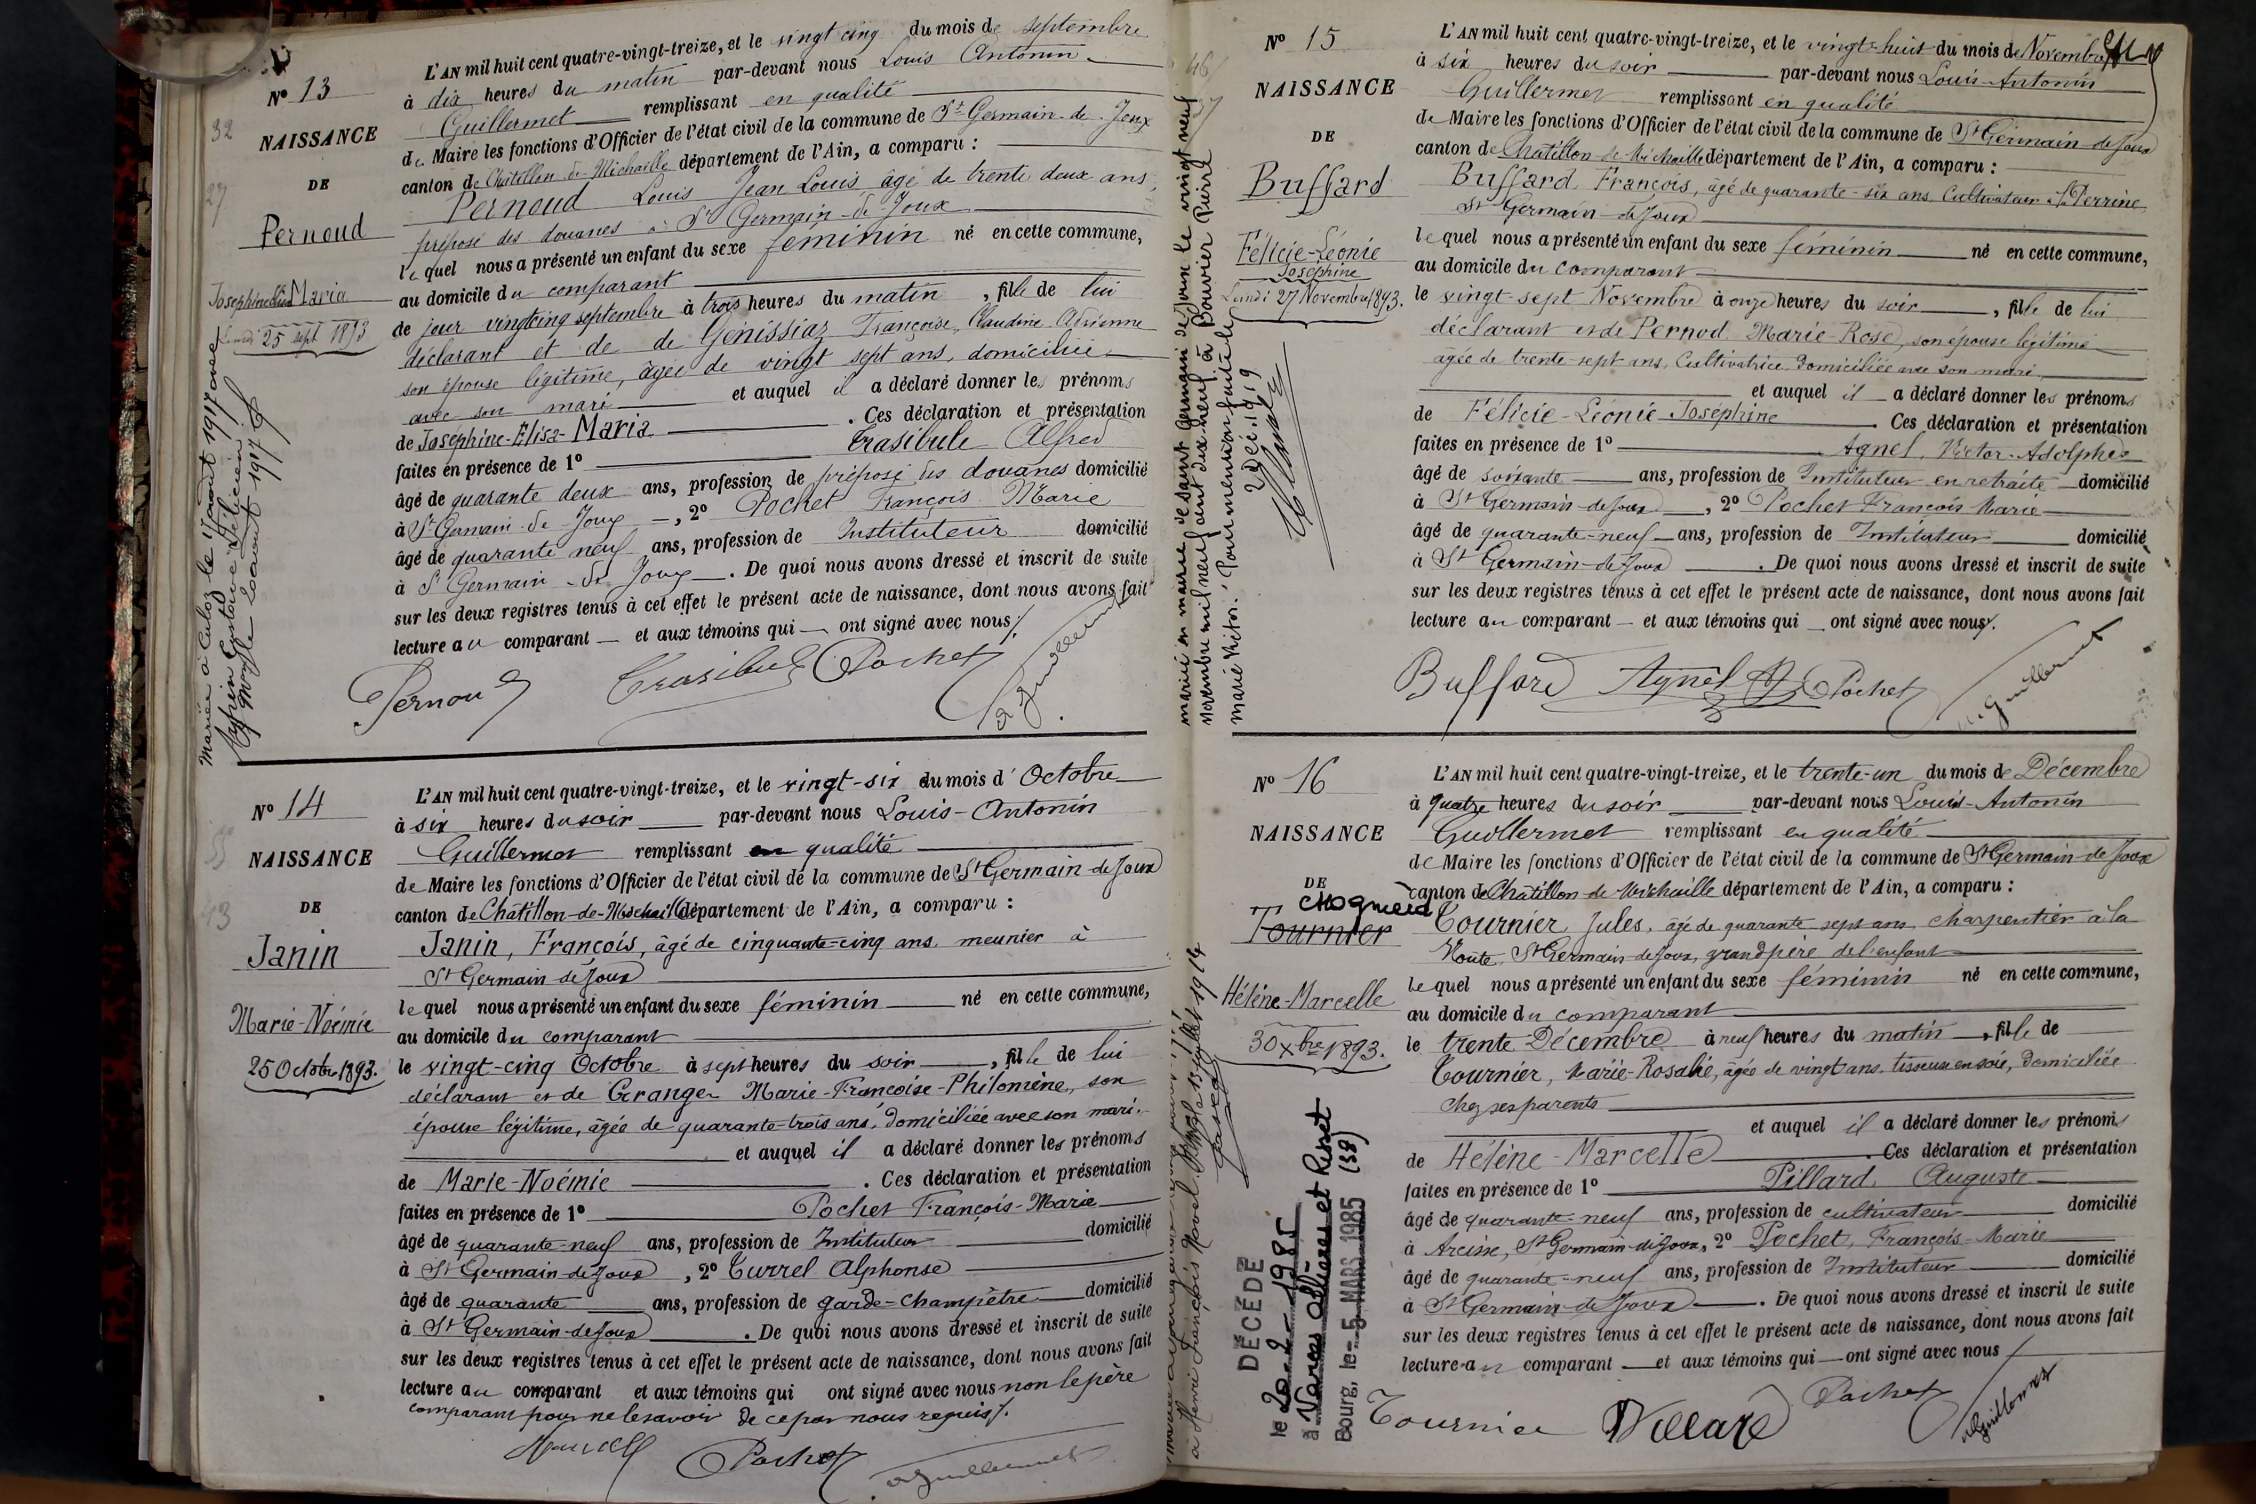 N° 13
NAISSANCE
DE
Pernoud
Josephine Elisa Maria
Lundi 25 sept 1893
L'AN mil huit cent quatre-vingt-treize, et le vingt cinq du mois de septembre
à dix heures du matin par-devant nous Louis Antonin
Guillermet remplissant en qualité
de Maire les fonctions d'Officier de l'état civil de la commune de St Germain-de-Joux
canton de Châtillon-de-Michaille département de l'Ain, a comparu :
Pernoud Louis Jean Louis âgé de trente deux ans,
préposé des douanes à St Germain-de-Joux
lequel nous a présenté un enfant du sexe féminin né en cette commune,
au domicile du comparant
de jour vingt cinq septembre à trois heures du matin, fille de lui
déclarant et de de Génissiaz Françoise, Claudine
son épouse légitime, âgée de vingt sept ans, domiciliée
avec son mari et auquel il a déclaré donner les prénoms
de Joséphine-Elisa-Maria. Ces déclaration et présentation
faites en présence de 1° Trasibule Alfred
âgé de quarante deux ans, profession de préposé des douanes domicilié
à St Germain-de-Joux, 2° Pochet François Marie
âgé de quarante neuf ans, profession de Instituteur domicilié
à St Germain-de-Joux. De quoi nous avons dressé et inscrit de suite
sur les deux registres tenus à cet effet le présent acte de naissance, dont nous avons fait
lecture au comparant et aux témoins qui ont signé avec nous.
Pernoud Trasibule Pochet Guillermet
N° 14
NAISSANCE
DE
Janin
Marie-Noémie
25 Octobre 1893.
L'AN mil huit cent quatre-vingt-treize, et le vingt-six du mois d'Octobre
à six heures du soir par-devant nous Louis-Antonin
Guillermet remplissant en qualité
de Maire les fonctions d'Officier de l'état civil de la commune de St Germain-de-Joux
canton de Châtillon-de-Michaille département de l'Ain, a comparu :
Janin, François, âgé de cinquante-cinq ans, meunier à
St Germain-de-Joux
lequel nous a présenté un enfant du sexe féminin né en cette commune,
au domicile du comparant
le vingt-cinq Octobre à sept heures du soir, fille de lui
déclarant et de Granger Marie-Françoise-Philomène, son
épouse légitime, âgée de quarante-trois ans, domiciliée avec son mari.
et auquel il a déclaré donner les prénoms
de Marie-Noémie. Ces déclaration et présentation
faites en présence de 1° Pochet François-Marie
âgé de quarante-neuf ans, profession de Instituteur domicilié
à St Germain-de-Joux, 2° Turrel Alphonse
âgé de quarante ans, profession de garde-champêtre domicilié
à St Germain-de-Joux. De quoi nous avons dressé et inscrit de suite
sur les deux registres tenus à cet effet le présent acte de naissance, dont nous avons fait
lecture au comparant et aux témoins qui ont signé avec nous non le père
comparant pour ne le savoir de ce par nous requis.
Pochet Guillermet
N° 15
NAISSANCE
DE
Buffard
Félicie-Léonie
Joséphine
Lundi 27 Novembre 1893.
mariée en mairie de Saint Germain de Joux le vingt neuf
Novembre mil neuf cent dix-neuf à Bouvier Pierre
Marie Victor. Pour mention faite le
2 Déc. 1919
L'AN mil huit cent quatre-vingt-treize, et le vingt-huit du mois de Novembre
à six heures du soir par-devant nous Louis-Antonin
Guillermet remplissant en qualité
de Maire les fonctions d'Officier de l'état civil de la commune de St Germain-de-Joux
canton de Châtillon-de-Michaille département de l'Ain, a comparu :
Buffard François, âgé de quarante-six ans, Cultivateur
St Germain-de-Joux
lequel nous a présenté un enfant du sexe féminin né en cette commune,
au domicile du comparant
le vingt-sept Novembre à onze heures du soir, fille de lui
déclarant et de Pernod Marie-Rose, son épouse légitime
âgée de trente-sept ans, Cultivatrice domiciliée avec son mari
et auquel il a déclaré donner les prénoms
de Félicie-Léonie-Joséphine. Ces déclaration et présentation
faites en présence de 1° Agnel, Victor-Adolphe
âgé de soixante ans, profession de Instituteur en retraite domicilié
à St Germain-de-Joux, 2° Pochet François-Marie
âgé de quarante-neuf ans, profession de Instituteur domicilié
à St Germain-de-Joux. De quoi nous avons dressé et inscrit de suite
sur les deux registres tenus à cet effet le présent acte de naissance, dont nous avons fait
lecture au comparant et aux témoins qui ont signé avec nous.
Buffard Agnel Pochet Guillermet
N° 16
NAISSANCE
DE
Tournier
Hélène-Marcelle
30 Xbre 1893.
DÉCÉDÉ
le 20-2-1985
Bourg, le - 5 MARS 1985 (38)
L'AN mil huit cent quatre-vingt-treize, et le trente-un du mois de Décembre
à quatre heures du soir par-devant nous Louis-Antonin
Guillermet remplissant en qualité
de Maire les fonctions d'Officier de l'état civil de la commune de St Germain-de-Joux
canton de Châtillon-de-Michaille département de l'Ain, a comparu :
Tournier Jules, âgé de quarante sept ans, charpentier à la
Route, St Germain-de-Joux, grand père de l'enfant
lequel nous a présenté un enfant du sexe féminin né en cette commune,
au domicile du comparant
le trente Décembre à neuf heures du matin, fille de
Tournier, Marie-Rosalie, âgée de vingt ans, tisseuse en soie, domiciliée
chez ses parents
et auquel il a déclaré donner les prénoms
de Hélène-Marcelle. Ces déclaration et présentation
faites en présence de 1° Pillard Auguste
âgé de quarante-neuf ans, profession de cultivateur domicilié
à St Germain-de-Joux, 2° Pochet, François-Marie
âgé de quarante-neuf ans, profession de Instituteur domicilié
à St Germain-de-Joux. De quoi nous avons dressé et inscrit de suite
sur les deux registres tenus à cet effet le présent acte de naissance, dont nous avons fait
lecture au comparant et aux témoins qui ont signé avec nous
Tournier Pillard Pochet Guillermet